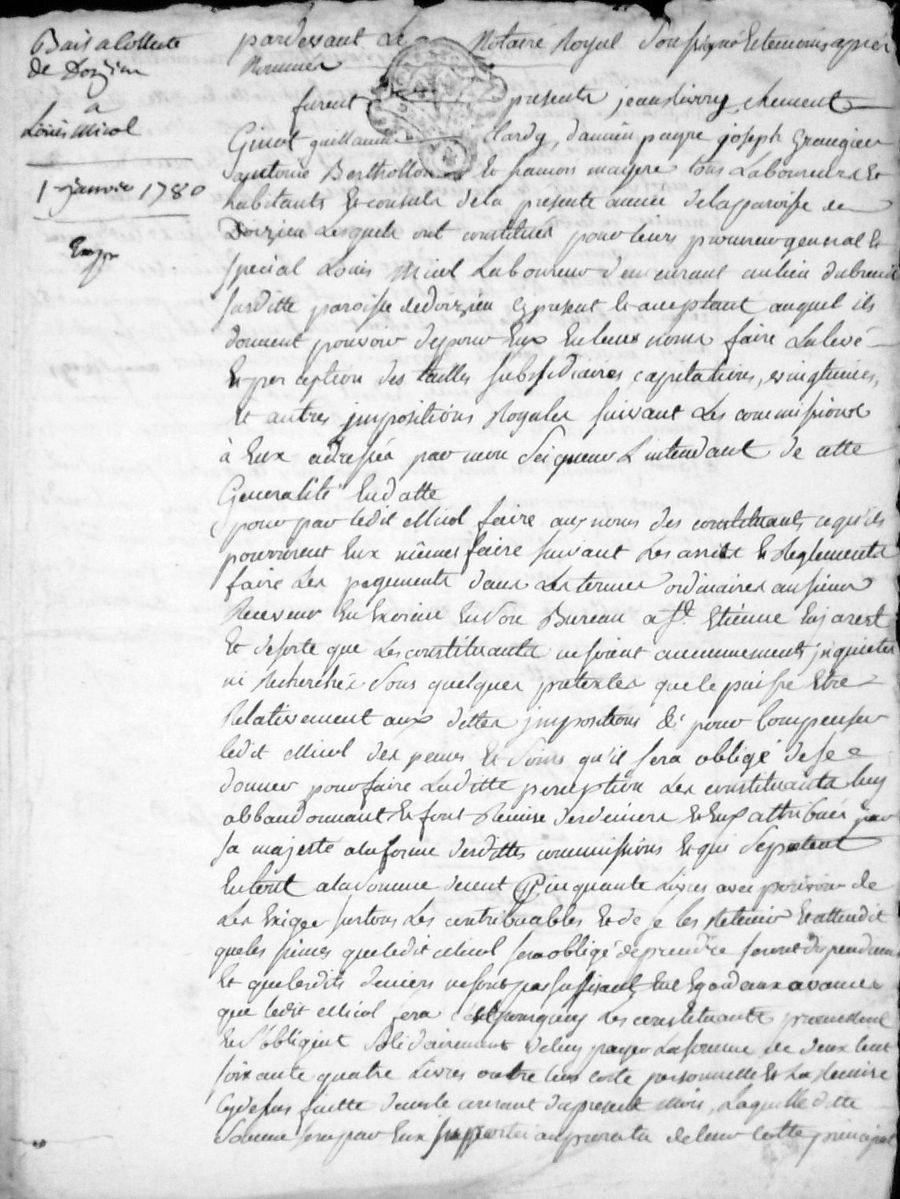 Bail a Collecte
de Doizieu
a
Louis Micol
1er janvier 1780
pardevant Le Notaire Royal Soussigné Et temoins apres
Nommés
furent presents jean clement
Ginot guillaume hardy, damien payre joseph Grangier
antoine Berthollon Et francois mazere tous Laboureurs Et
habitants Et consuls de la presente année de la paroisse de
Doizieu Lesquels ont constitués pour leurs procureur general Et
special Louis Micol Laboureur demeurant au lieu du breuil
susditte paroisse de doizieu cy present Et acceptant auquel ils
donnent pouvoir de pour Eux En leurs noms faire La levé
Et perception des tailles subsidiaires capitations, vingtiemes,
Et autres jmpositions Royales suivant Les commissions
à Eux adressés par mon Seigneur L'intendant de cette
Generalité En datte
pour par ledit Micol faire aux noms des constituants ce qu'ils
pourroient Eux mêmes faire suivant Les arrets Et Reglements
faire Les payements dans Les termes ordinaires au sieur
Receveur En Exercice En Son Bureau a St. Etienne
Et de sorte que Les constituants ne soient aucunement jnquietés
ni Recherchés Sous quelques pretextes que le puisse Etre
Relativement aux dittes jmpositions & pour Compenser
ledit Micol des peines Et Soins qu'il sera obligé de se
donner pour faire Laditte perception Les constituants luy
abbandonnent Et font Remise des deniers Et Eux attribués par
sa majesté a la forme desdittes commissions Et qui Se portent
En tout a la Somme de cent Cinquante Livres avec pouvoir de
Les Exiger sur tous Les contribuables Et de se les Retenir Et attendu
que les peines que ledit Micol sera obligé de prendre seront
Et que lesdits deniers ne sont pas suffisants En Egard aux avances
que ledit Micol sera c'est pourquoy Les constituants promettent
Et S'obligent Solidairement de luy payer La somme de deux cent
soixante quatre Livres outre leur cotte personnelle Et La Remise
cy dessus faitte dans le courant du present mois, Laquelle ditte
Somme sera par Eux supportée au prorata de leur cotte principal